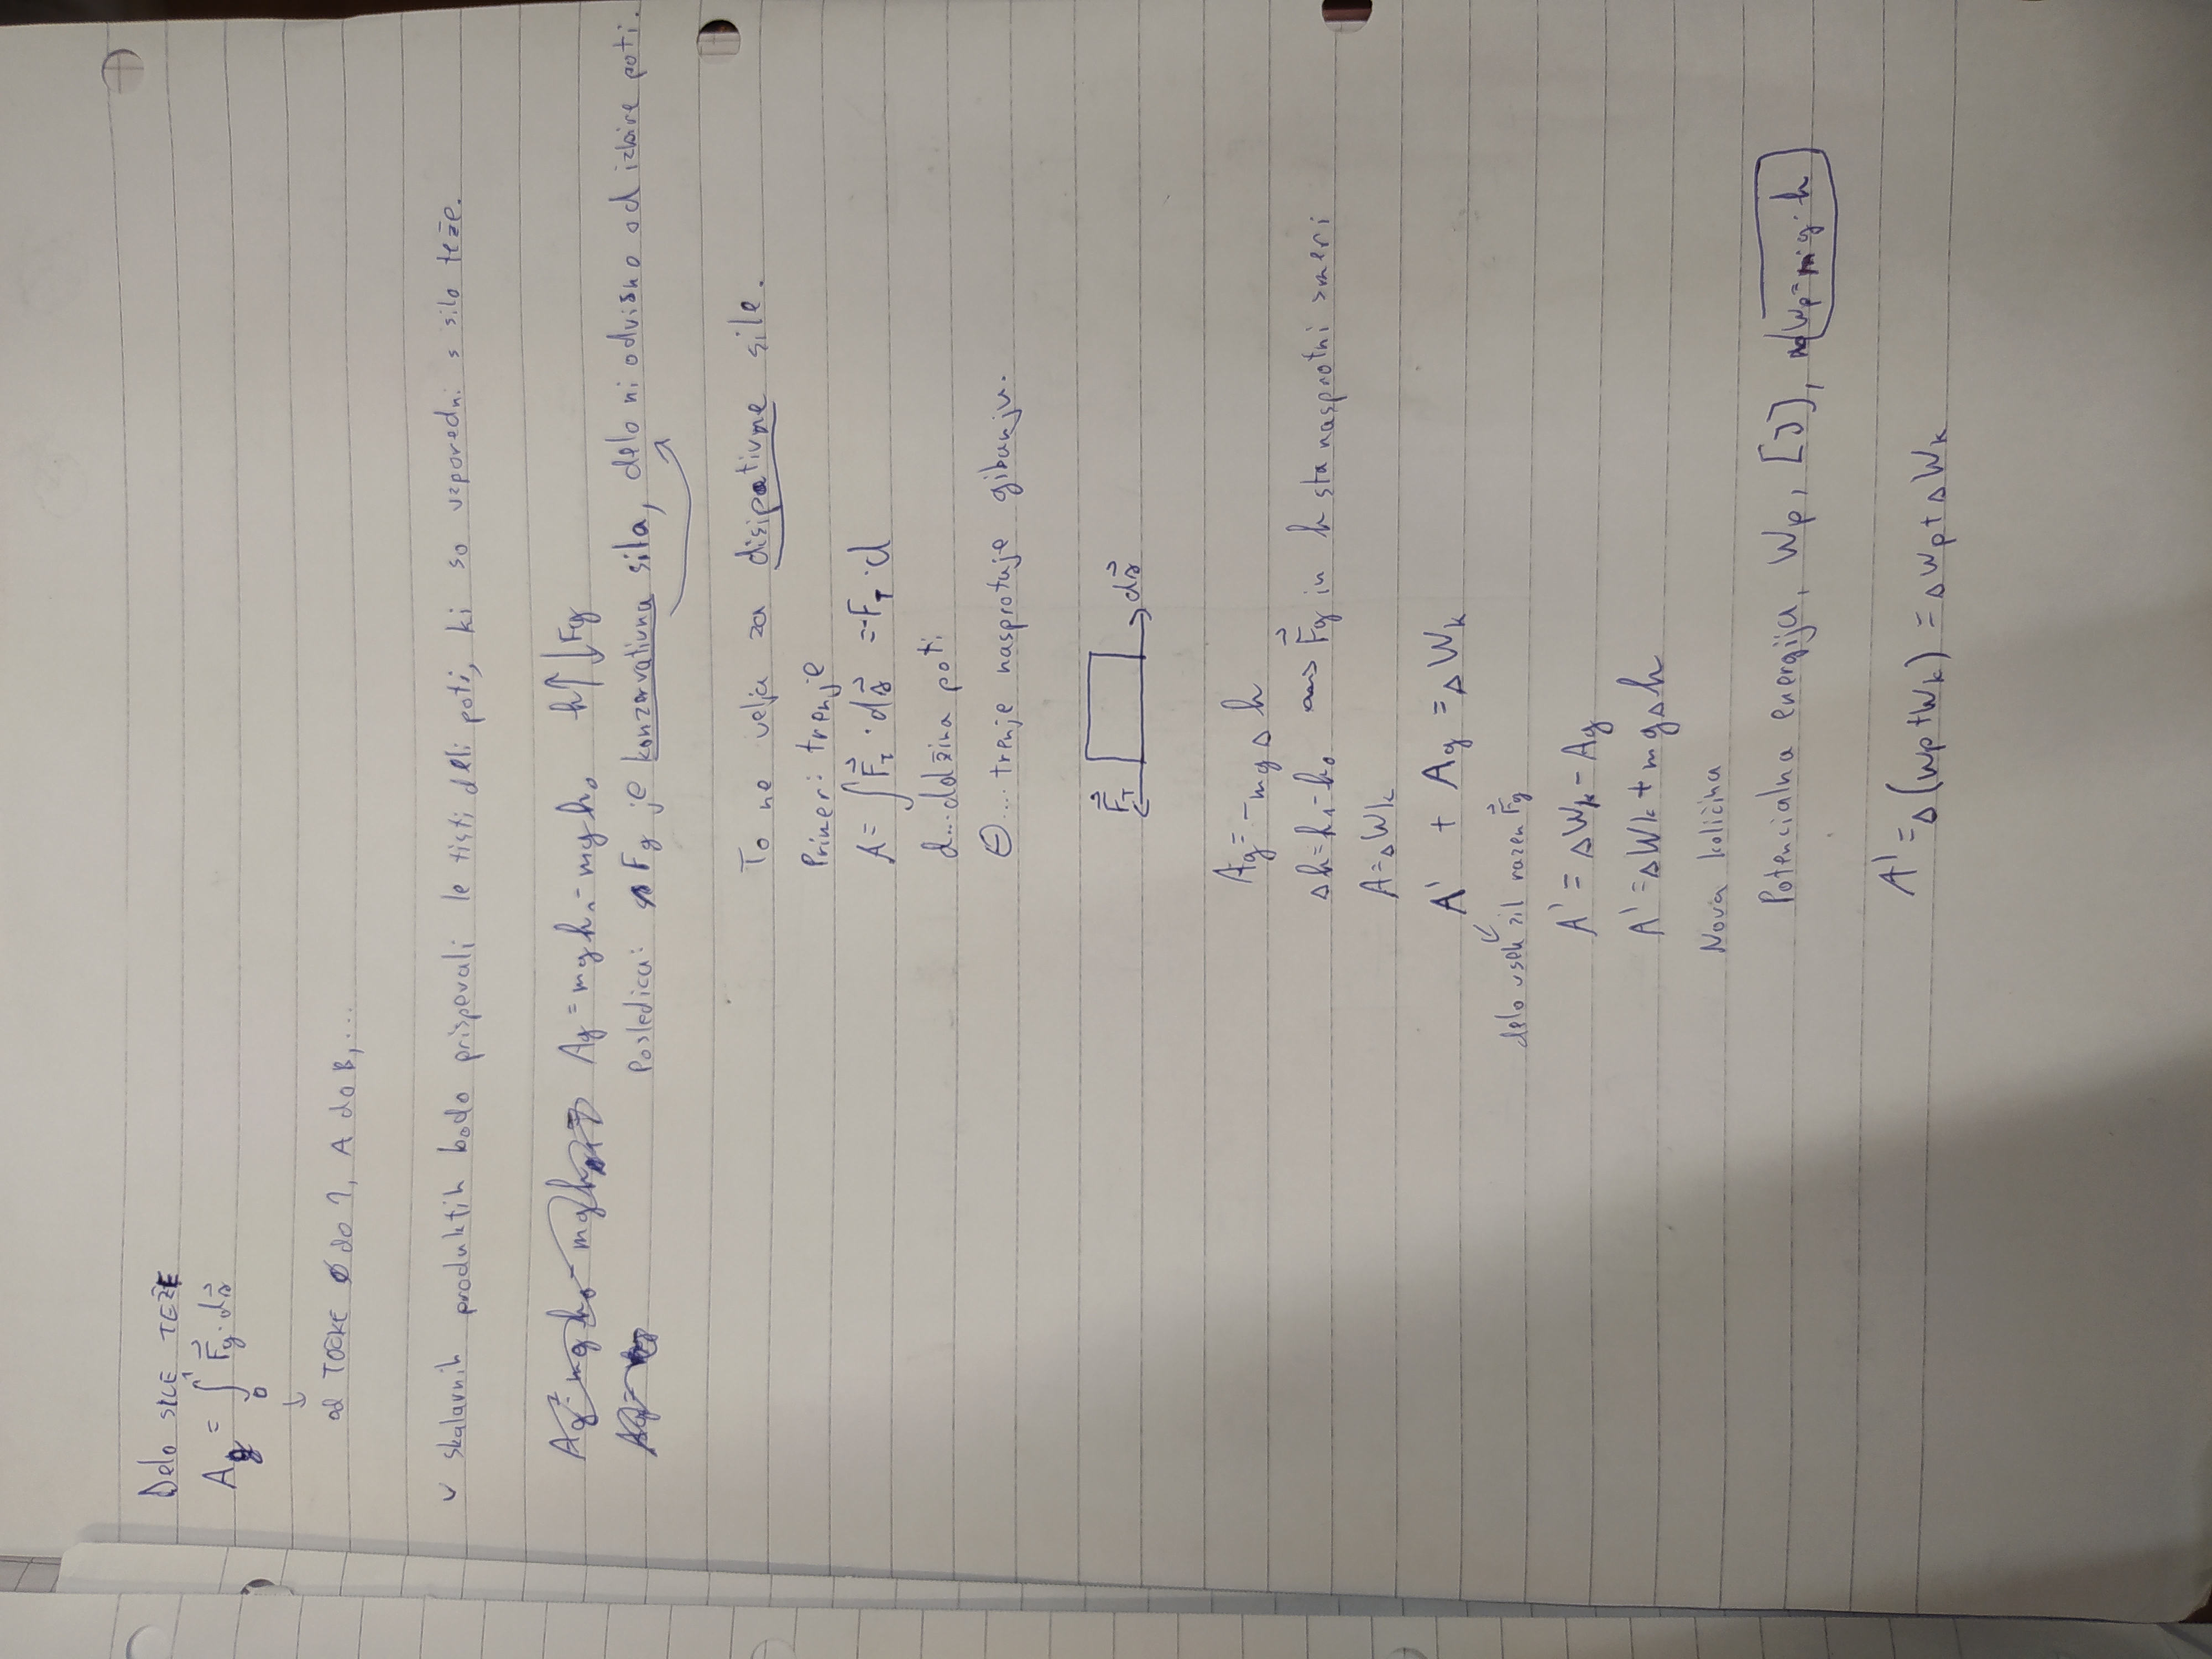 Delo SILE TEŽE
A_g = ∫₀¹ F⃗_g · ds⃗
↓
od TOČKE 0 do 1, A do B, ...
v skalarnih produktih bodo prispevali le tisti deli poti, ki so vzporedni s silo teže.
A_g = mgh₁ - mgh₀ h↑ ↓Fg
Posledica: Fg je konzervativna sila, delo ni odvisno od izbire poti.
To ne velja za disipativne sile.
Primer: trenje
A = ∫ F⃗_T · ds⃗ = -F_T · d
d... dolžina poti
⊖.... trenje nasprotuje gibanju.
F⃗_T ds⃗
Ag = -mg△h
△h = h₁ - h₀ F⃗g in h sta nasprotni smeri
A = △Wk
A' + Ag = △Wk
delo vseh sil razen F⃗g
A' = △Wk - Ag
A' = △Wk + mg△h
Nova količina
Potencialna energija, Wp, [J], Wp = m·g·h
A' = △(Wp + Wk) = △Wp + △Wk